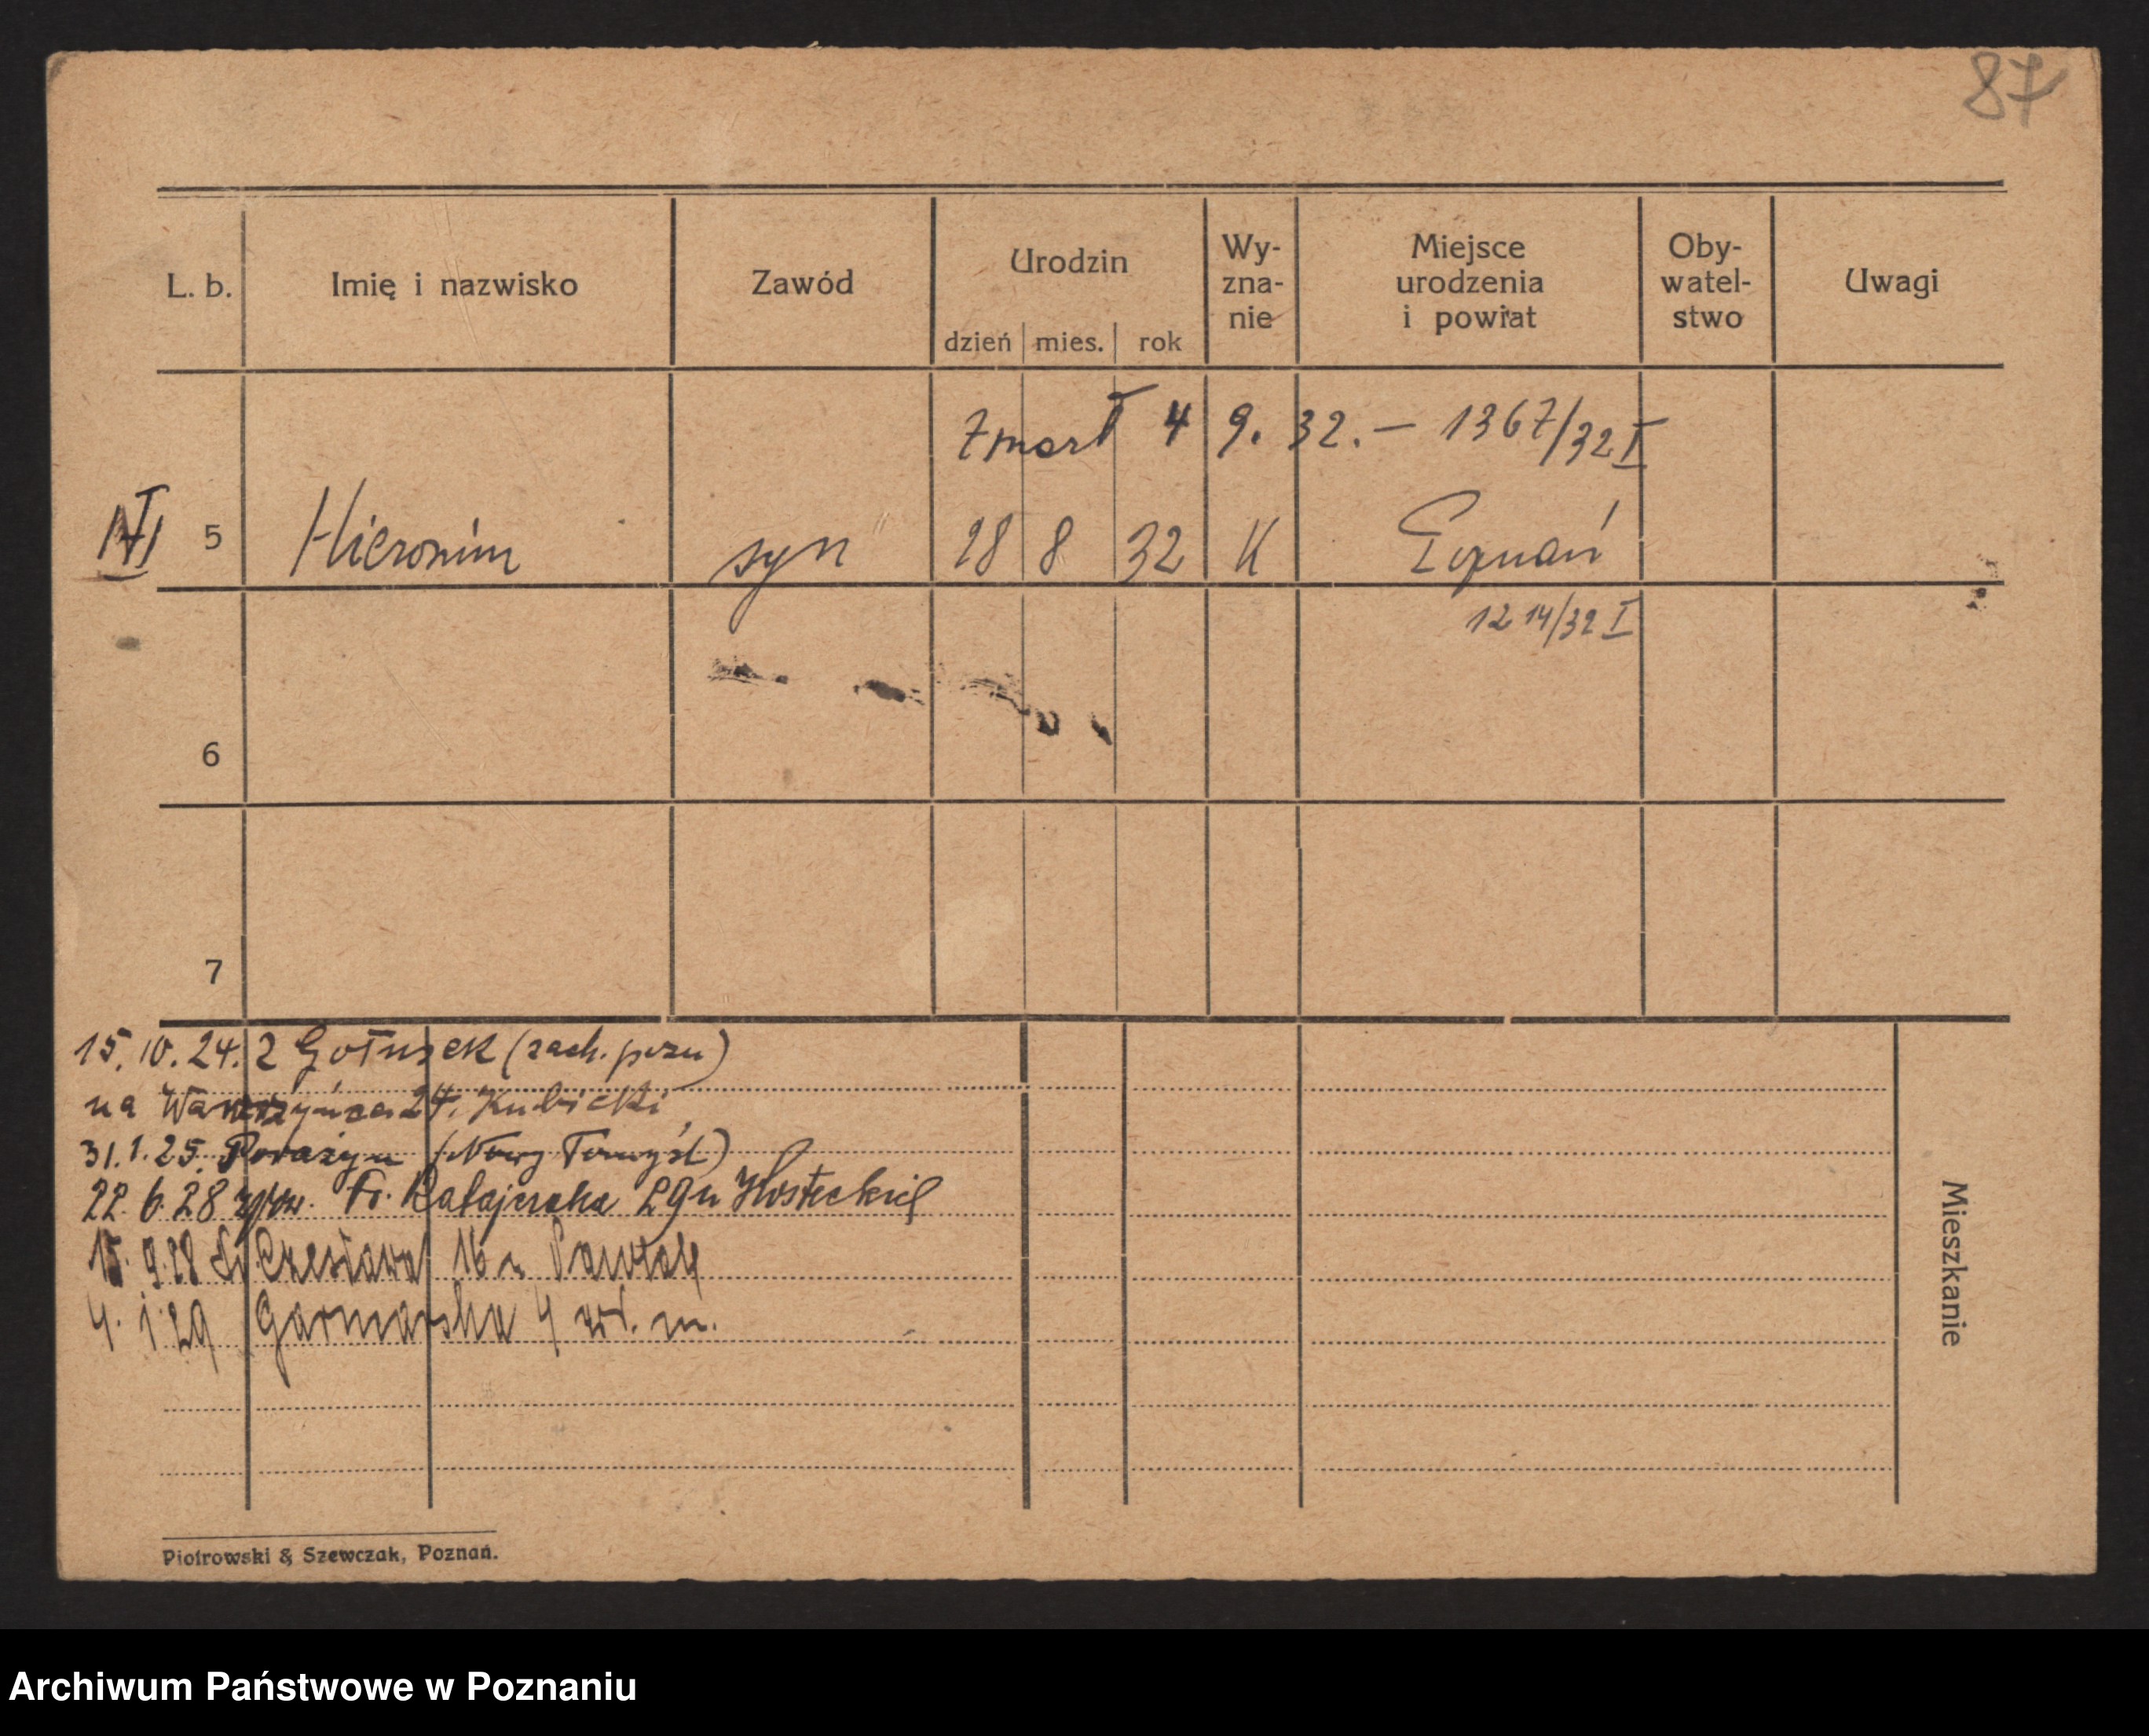 87
L. b. Imię i nazwisko Zawód Urodzin dzień mies. rok Wy-zna-nie Miejsce urodzenia i powiat Oby-watel-stwo Uwagi
zmarł 4 9. 32. – 1367/32 I
5 Hieronim syn 28 8 32 K Poznań
1214/32 I
6
7
15. 10. 24. z Gołusek (zach. pozn)
na Wawrzyńca 24. Kubicki
31. 1. 25. Porażyn (Nowy Tomyśl)
22. 6. 28 Fr. Ratajczaka 29 u
15. 9. 28 Czesława 16 u
4. 1. 29 Garncarska 4 wł. m.
Mieszkanie
Piotrowski & Szewczak, Poznań.
Archiwum Państwowe w Poznaniu